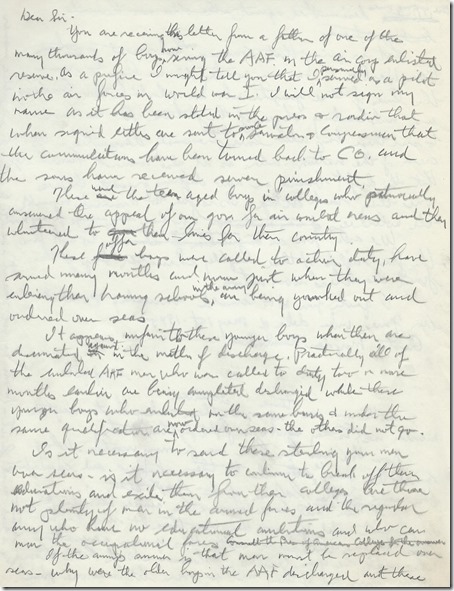 Dear Sir -
You are receiving this letter from a father of one of the
many thousands of boys now serving the AAF in the air corp enlisted
reserve. As a prefice I might tell you that I served as a pilot
in the air forces in world war I. I will not sign my
name as it has been stated in the press & radio that
when signed letters are sent to Senators & Congressmen that
the communications have been turned back to C.O. and
the sons have received severe punishment.
These the teen aged boys in colleges who patriotically
answered the appeal of our gov. for air combat crews and they
volunteered to offer their lives for their country
These boys were called to active duty, have
served many months and now just when they were
entering their training schools, in the army are being yanked out and
ordered over seas
It appears unfair to these younger boys when they are
against in the matter of discharge. Practically all of
the enlisted AAF men who were called to duty two or more
months earlier are being completed discharged while these
younger boys who enlisted on the same basis & under the
same qualifications are now ordered over seas - the others did not go.
Is it necessary to send these sterling young men
over seas - is it necessary to continue to break off their
educations and exile them from their colleges. Are there
not plenty of men in the armed forces and the regular
army who have no educational ambitions and who can
man the occupational forces
If the army's answer is that men must be replaced over
seas - why were the older boys in the AAF discharged and these